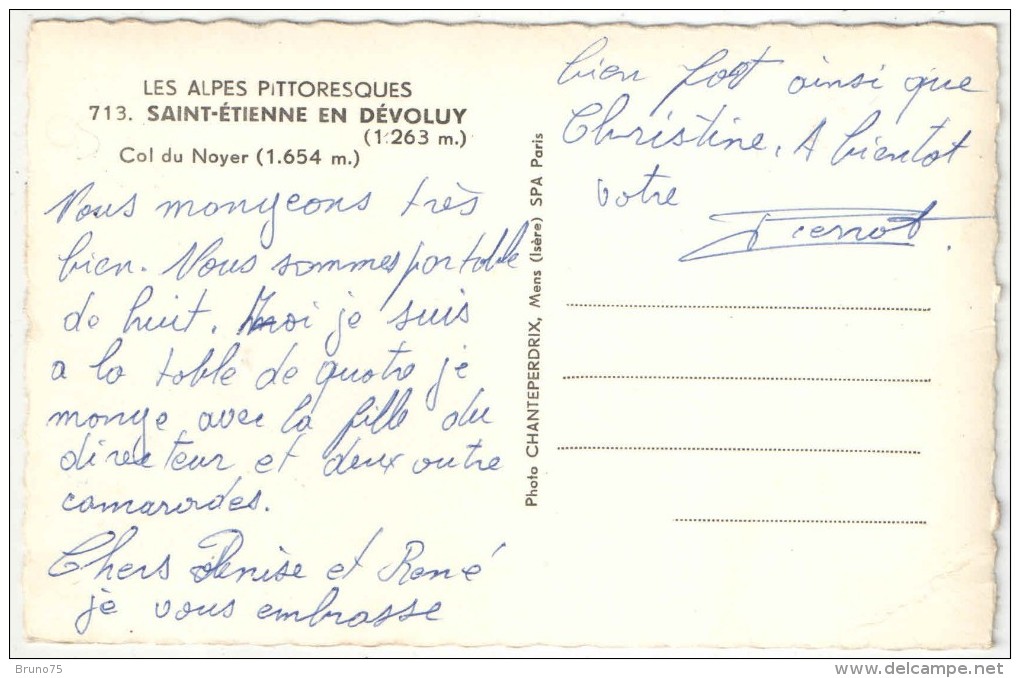 LES ALPES PITTORESQUES
713. SAINT-ÉTIENNE EN DÉVOLUY
(1.263 m.)
Col du Noyer (1.654 m.)
Nous mongeons très
bien. Nous sommes par table
de huit. Moi je suis
a la table de quatre je
monge avec la fille du
directeur et deux autre
camarades.
Chers Denise et René
je vous embrasse
Photo CHANTEPERDRIX, Mens (Isère) SPA Paris
bien fort ainsi que
Christine. A bientot
votre
Pierrot.
Bruno75
www.delcampe.net